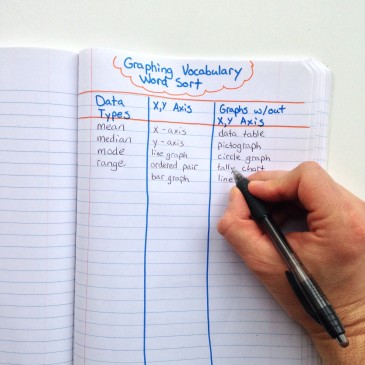 Graphing Vocabulary
Word Sort
Data
Types
X,Y Axis
Graphs w/out
X,Y Axis
mean
median
mode
range
x-axis
y-axis
line graph
ordered pair
bar graph
data table
pictograph
circle graph
tally chart
line